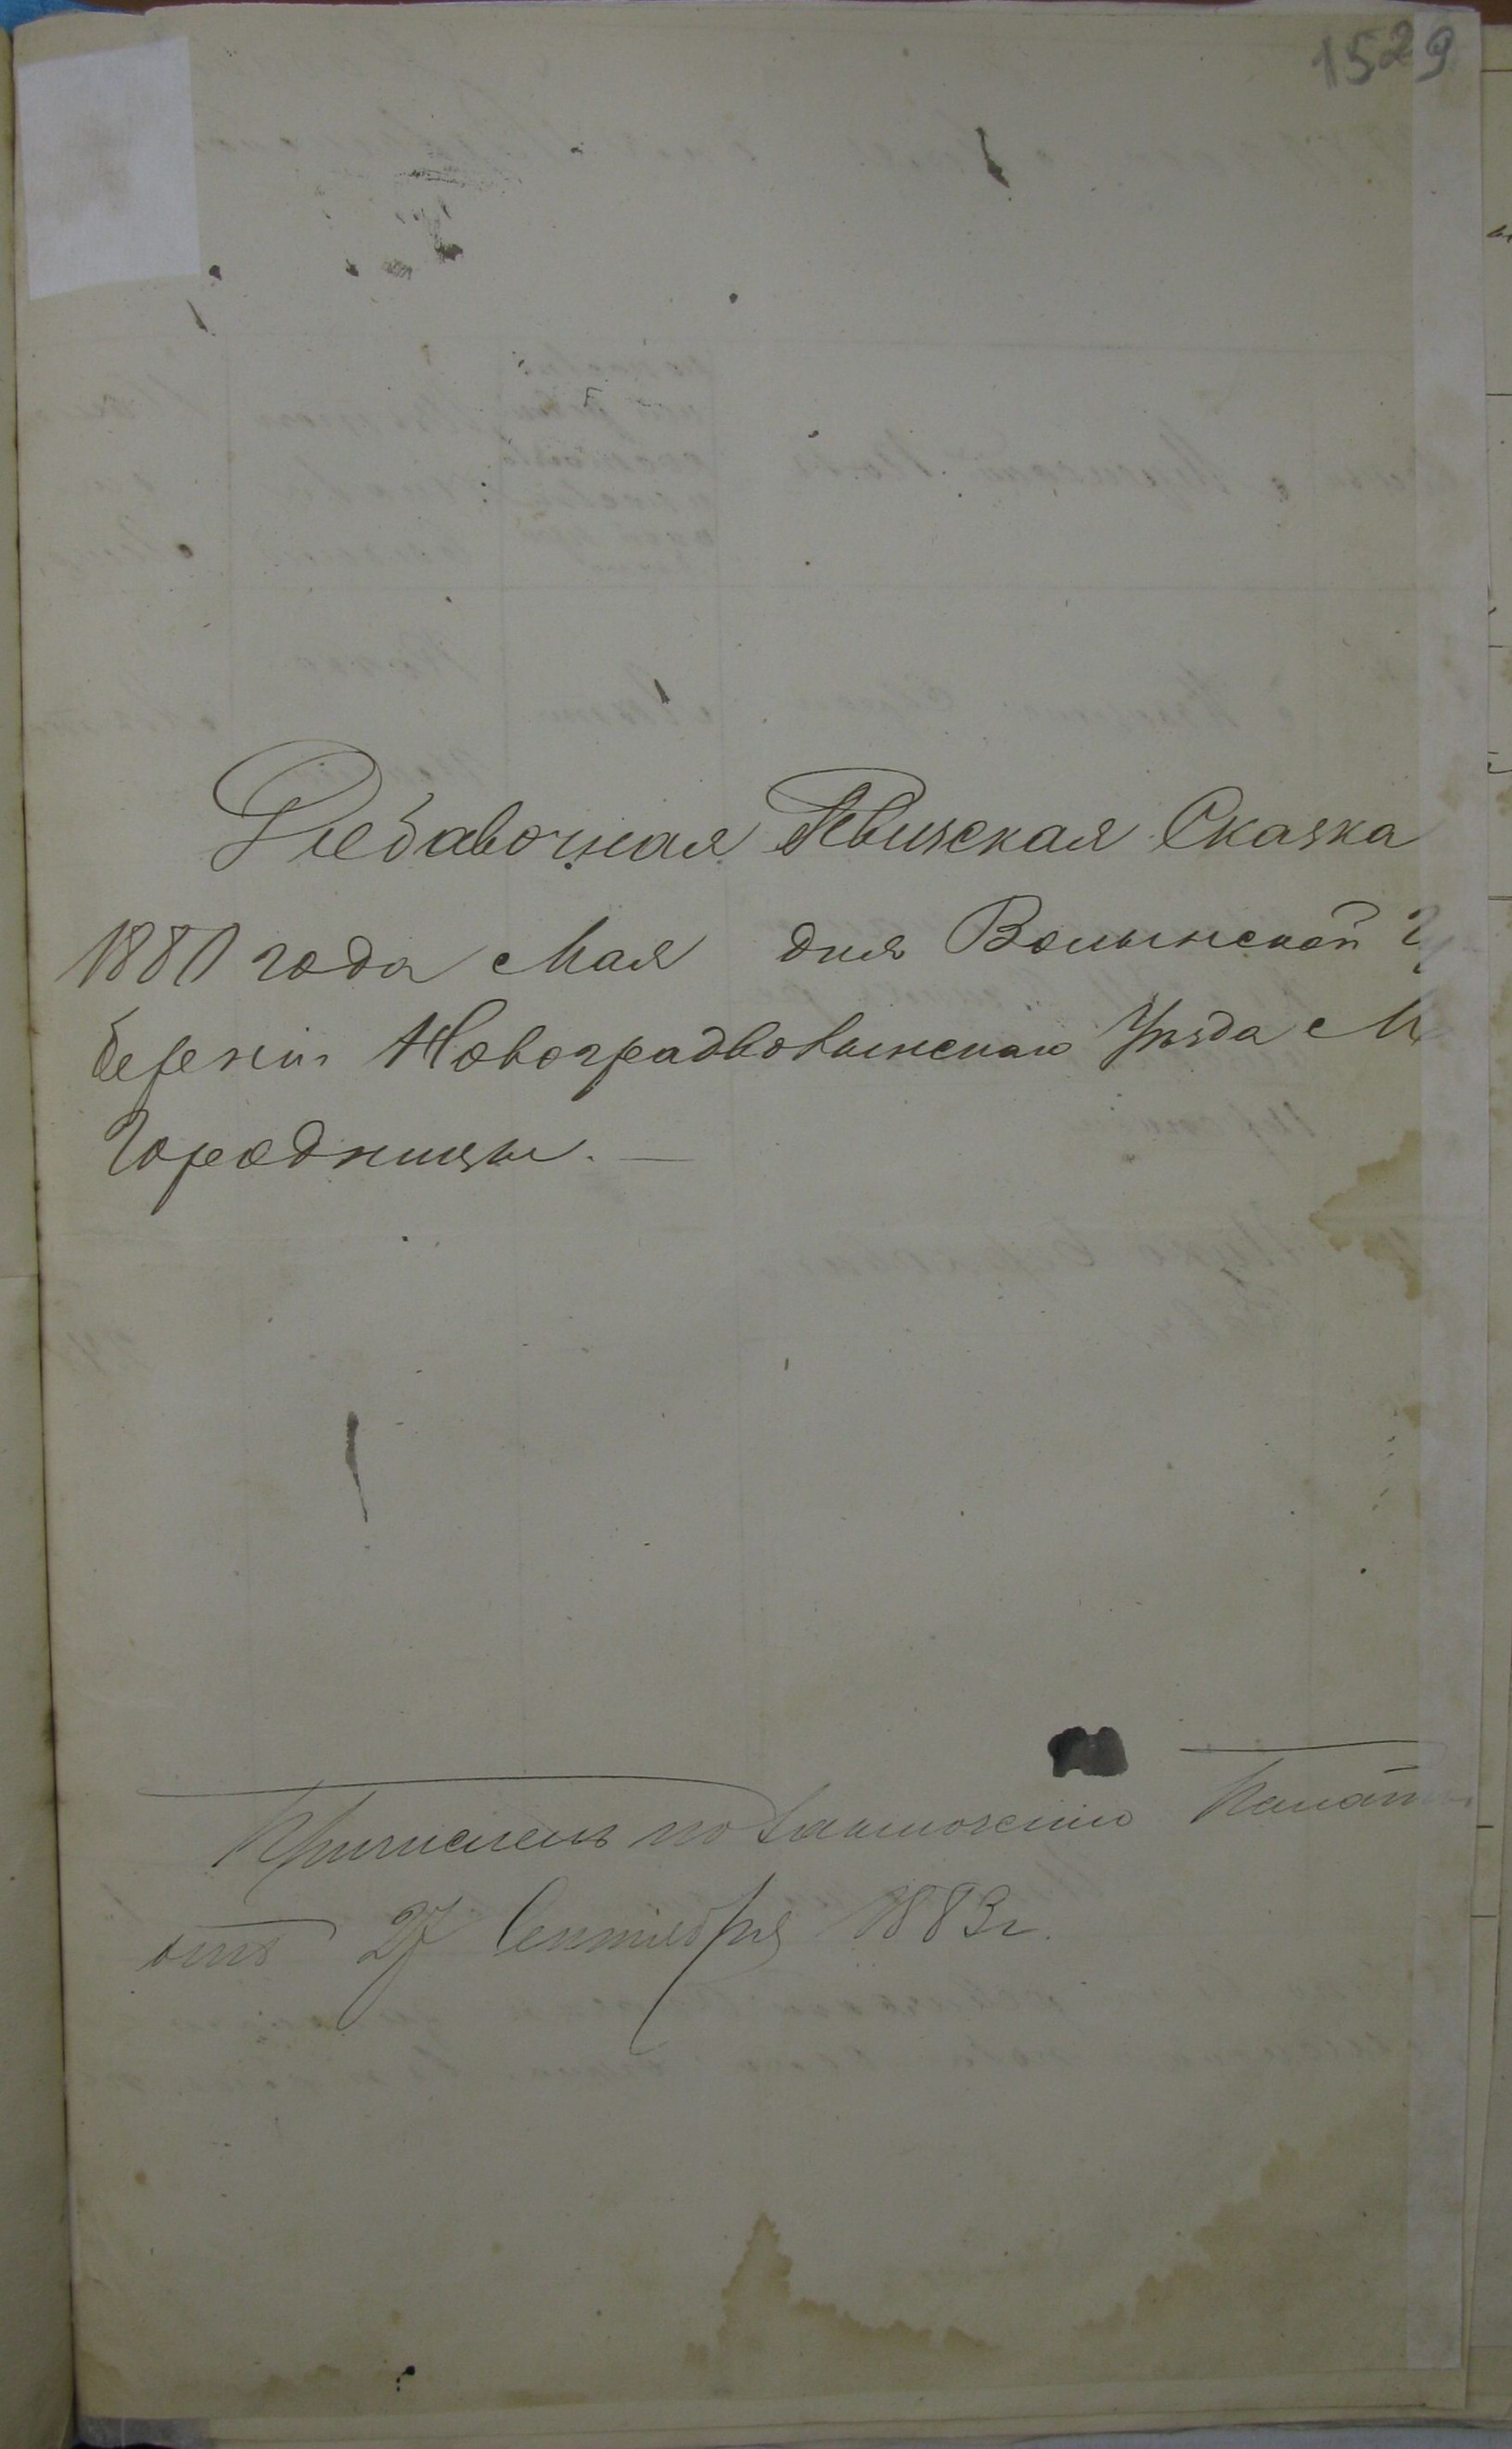 1529
Добавочная Ревизская Сказка
1880 года Мая дня Волынской Гу
берніи Новоградволынскаго Уѣзда М
Городницы. —
Причислены по Отношенію Палаты
отъ 27 Сентября 1883 г.